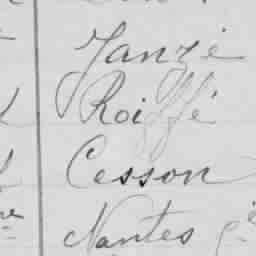 Janzé
Roiffé
Cesson
Nantes